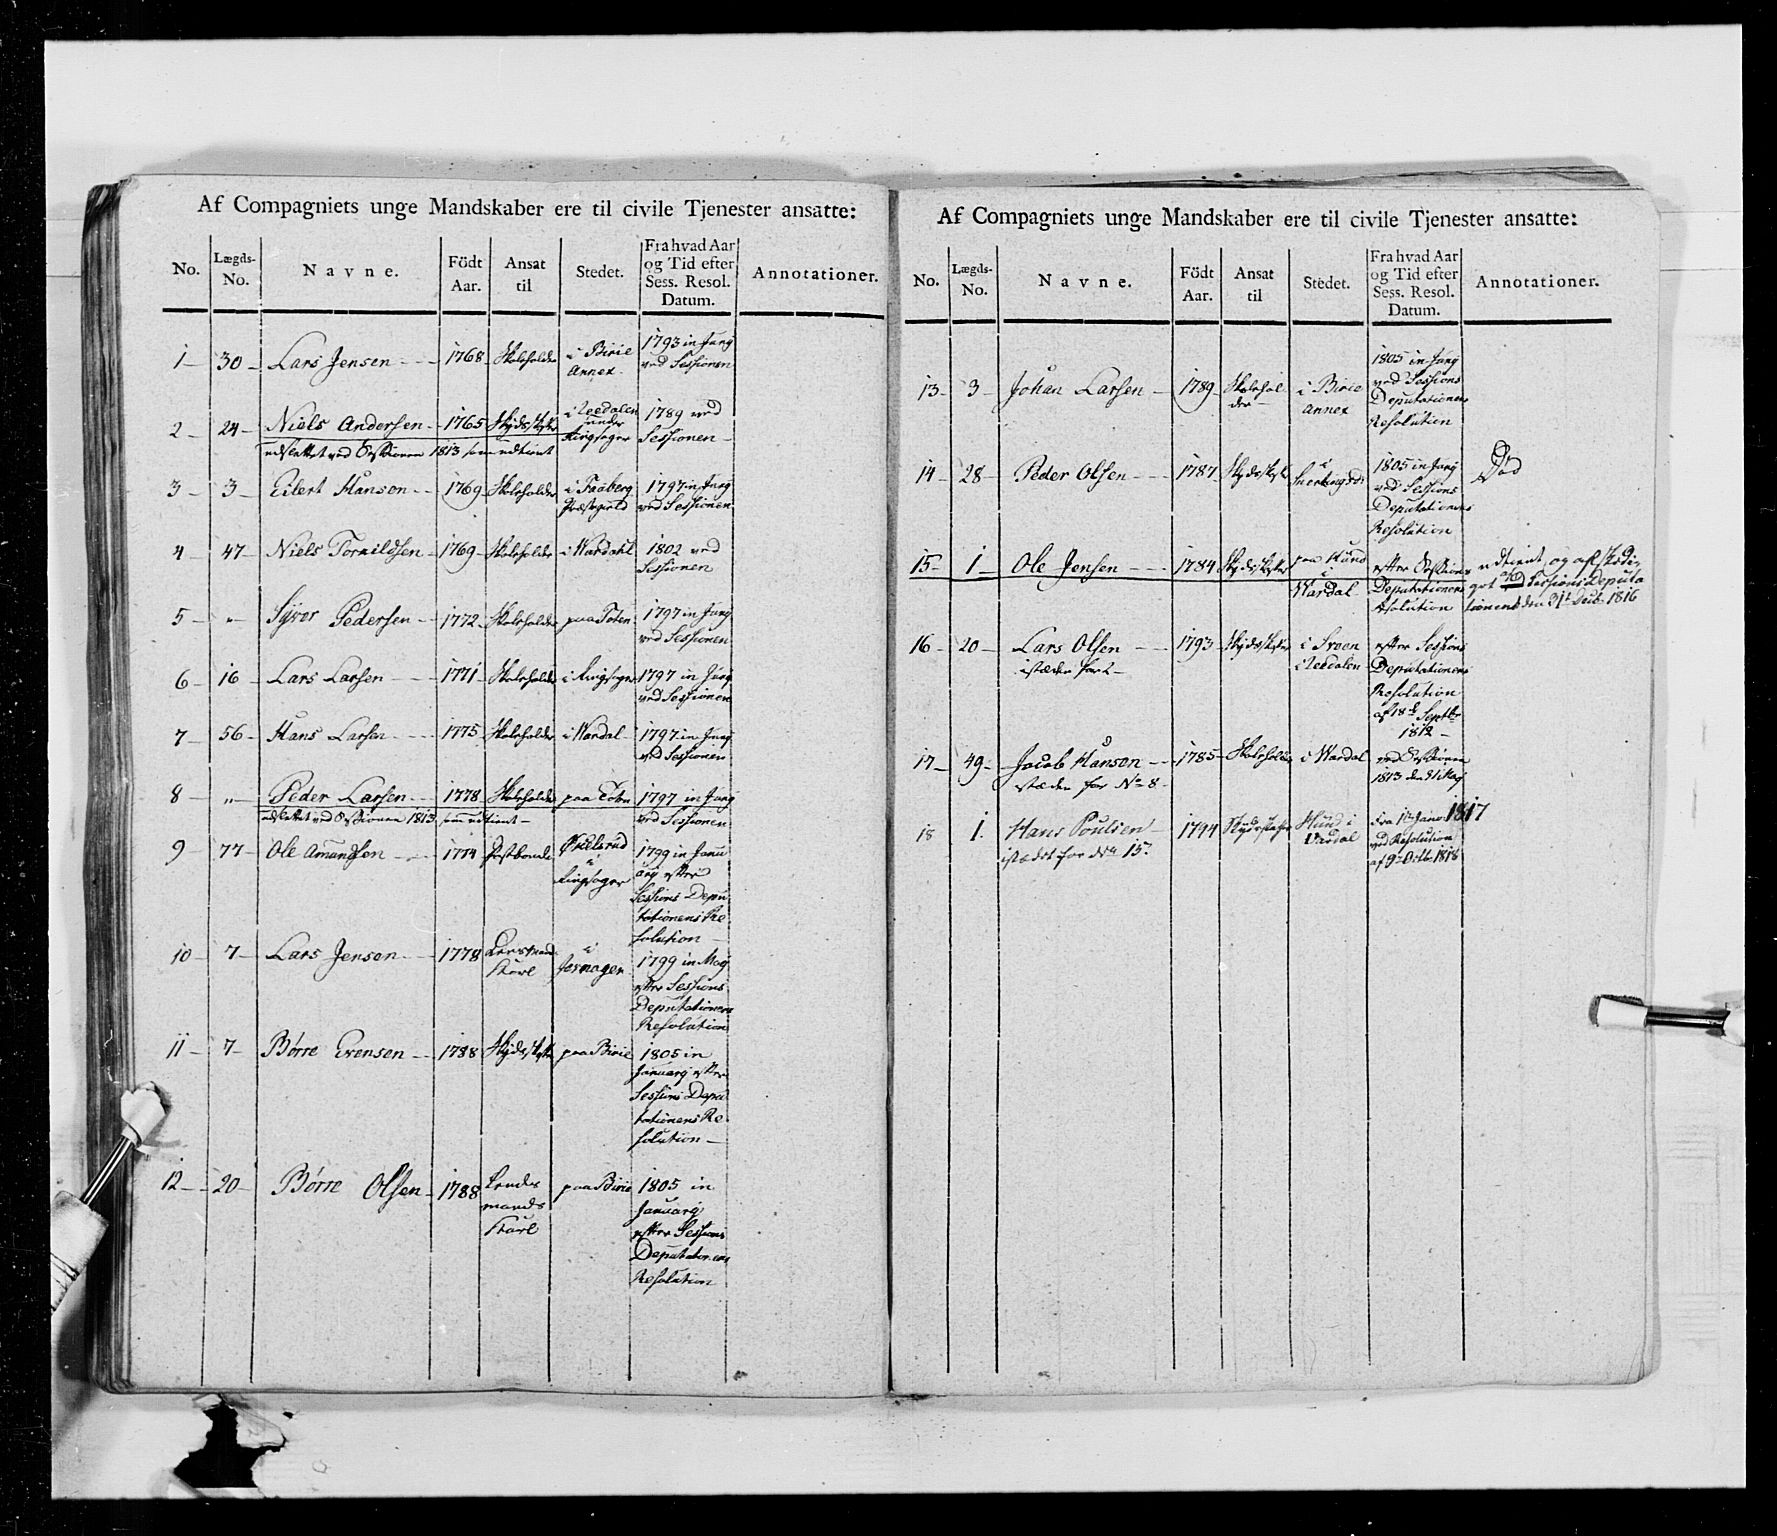 Af Compagniets unge Mandskaber ere til civile Tjenester ansatte:
No. Lægds-No. Navne. Födt Aar. Ansat til Stedet. Fra hvad Aar og Tid efter Sess. Resol. Datum. Annotationer.
1 — 30 — Lars Jensen — 1768 — Skoleholder i Birie Annex — 1793 in Juny ved Sessionen
2 — 24 — Niels Andersen — 1765 Skydsskafer i under Ringsager 1789 ved Sessionen —
udslettet ved Sessionen 1813 som udtient
3 — 3 — Eilert Hanson — 1769 — Skoleholder i Faaberg Præstegield 1797 in Juny ved Sessionen
4 — 47 — Niels — 1769 — Skoleholder i Wardahl 1802 ved Sessionen
5 — „ — Syver Pedersen — 1772 — Skoleholder paa Toten 1797 in Juny ved Sessionen
6 — 16 — Lars Larsen — 1771 — Skoleholder i Ringsager 1797 in Juny ved Sessionen
7 — 56 — Hans Larsen — 1775 Skoleholder i Wardal — 1797 in Juny ved Sessionen
8 — „ — Peder Larsen — 1778 Skoleholder paa Toten 1797 in Juny ved Sessionen
udslettet ved Sessionen 1813 som udtient —
9 — 77 — Ole Amundsen — 1774 Postbonde i Ringsager 1799 in Janu
ary efter
Sessions Depu
tationens Re
solution —
10 — 7 — Lars Jenson — 1778 Karl i 1799 in May
efter Sessions
Deputationens
Resolution
11 — 7 — Børre Evensen — 1788 Skydsskafer paa Birie 1805 in
January efter
Sessions Depu
tationens Re
solution —
12 — 20 — Børre Olsen — 1788 Lends
mands
Karl paa Birie 1805 in
January
efter Sessions
Deputationens
Resolution
Af Compagniets unge Mandskaber ere til civile Tjenester ansatte:
No. Lægds-No. Navne. Födt Aar. Ansat til Stedet. Fra hvad Aar og Tid efter Sess. Resol. Datum. Annotationer.
13 — 3 — Johan Larsen — 1789 — Skolehol
der — i Birie
Annex 1805 in Juny
ved Sessions
Deputationens
Resolution
14 — 28 — Peder Olsen — 1787 Skydsskafer i 1805 in Juny
ved Sessions
Deputationens
Resolution Død
15 — 1 — Ole Jensen — 1784 Skydsskafer paa Hund
i
Wardal efter Sessions
Deputationens
Resolution udtient og afskedi
get Sessions Deputa
tionens den 31t Decb. 1816
16 — 20 — Lars Olsen — 1793 Skydsskafer i
istæden for 2 — efter Sessions
Deputationens
Resolution
af 18de Septbr
1812 —
17 — 49 — Jacob Hanson — 1785 — Skoleholder i Wardal ved Sessionen
istæden for No 8 — 1813
18 1. Hans Poulsen — 1794 Skydsskafer Hund i
Vardal Fra 1te Janv. 1817
istædet for No 15. ved Resolution
af 9 Octb. 1818